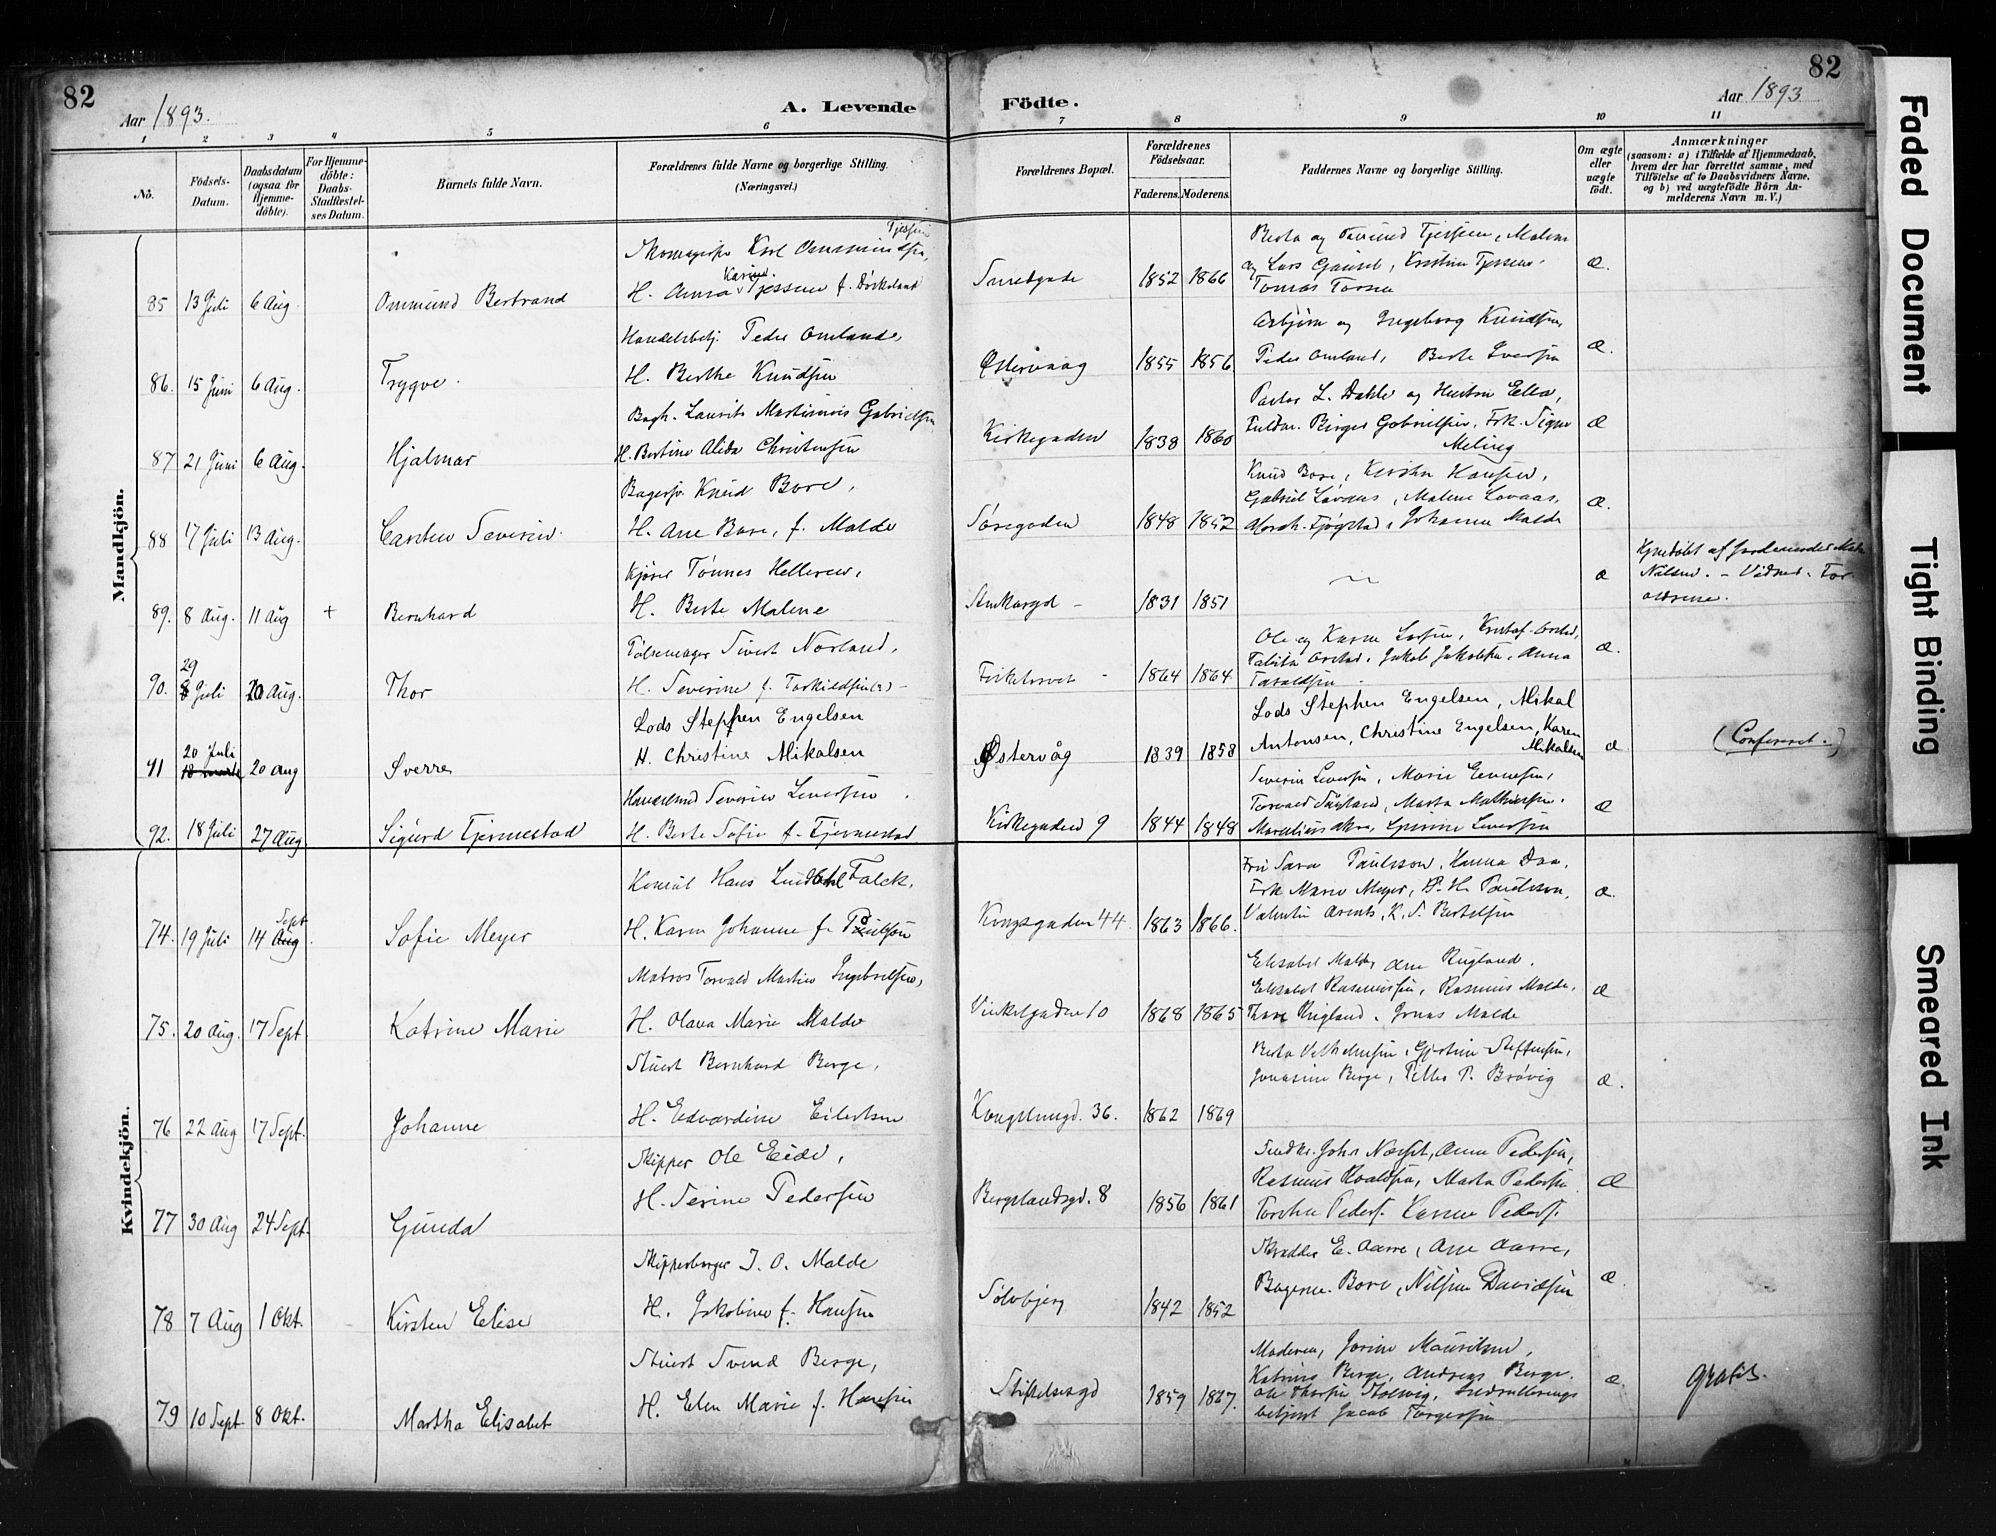 82
Aar 1893.
A. Levende
Födte.
Aar 1893
82
1 2 3 4 5 6 7 8 9 10 11
No.
Födsels-Datum.
Daabsdatum (ogsaa for Hjemmedöbte).
For Hjemmedöbte: Daabs-Stadfestelses Datum.
Barnets fulde Navn.
Forældrenes fulde Navne og borgerlige Stilling. (Næringsvei.)
Forældrenes Bopæl.
Forældrenes Födselsaar.
Faderens. Moderens.
Faddernes Navne og borgerlige Stilling.
Om ægte eller uægte födt.
Anmærkninger
(saasom: a) i Tilfælde af Hjemmedaab, hvem der har forrettet samme, med Tilföielse af to Daabsvidners Navne. og b) ved uægtefödte Börn Anmelderens Navn m. V.)
Mandkjön.
85 13 Juli 6 Aug. Ommund Bertrand
H. Anna Karine Tjessem f.
Smedgade 1852 1866
Tjessem, Malene
og Lars Gausel, Kristine Tjessem. æ.
86. 15 Juni 6 Aug. Trygve.
Handelsbetj. Peder Omland,
H. Berthe Knudsen
Østervaag 1855 1856
Asbjörn og Ingeborg Knudsen,
Peder Omland, Berte Iversen æ.
87 21 Juni 6 Aug. Hjalmar
Bogh. Laurits Martinius Gabrielsen
H. Bertine Alida Christensen
Kirkegaden 1838 1860
Pastor L. Dahle og Hustru Ella,
Birger Gabrielsen, Frk. Signe
Meling æ
88 17 Juli 13 Aug. Carsten Severin.
Knud Bore,
H. Ane Bore, f. Malde
Søregaden 1848 1852
Knud Bore, Kirsten Hansen,
Gabriel Lövaas, Malene Lovaas,
Abrah. Fjøgstad, Johanna Malde æ.
89. 8 Aug. 11 Aug + Bernhard
Tönnes Helleren,
H. Berte Malene
1831 1851 æ
Hjmedöbt af Jordemoder
Vidner. For-
ældrene.
90. 29 Juli 20 Aug. Thor
Pølsemager Sivert Norland,
H. Severine f. Torkildsen(?) –
Fisketorvet - 1864 1864
Ole og Karen Larsen,
Jakob Jakobsen, Anna
Taraldsen æ.
91 20 Juli 20 aug Sverre
Lods Stephen Engelsen
H. Christine Mikalsen
Østervåg 1839 1858
Lods Stephen Engelsen, Mikal
Antonsen, Christine Engelsen, Karen
Mikalsen æ
(Confereret.)
92. 18 Juli 27 Aug. Sigurd Tjermestad
Severin Leversen
H. Berte Sofie f. Tjermestad
Kirkegaden 9 1844 1848
Severin Leversen, Marie
Marta Mathiesen. æ
Kvindekjön.
74. 19 Juli 14 Sept Sofie Meyer
Konsul Hans Lindahl Falck,
H. Karen Johanne f. Poulson
Kongsgaden 44 1863 1866.
Fru Sara Paulsson, Hanna Daa,
Frk Marie Meyer, P. H. Poulsson,
Valentin K. S. Bertelsen æ.
75. 20 Aug. 17 Sept. Katrine Marie
Matros Torvald Martin Ingebretsen,
H. Olava Marie Malde
Vinkelgaden 10 1868 1865
Elisabet Malde, Ane Rugland.
Elisabet Rasmussen, Rasmus Malde.
Thore Rugland. Jonas Malde æ
76 22 Aug 17 Sept. Johanne
Stuert Bernhard Berge,
H. Edvardine Eilertsen
36. 1862 1869
Berta Vilhelmsen,
Jonasine Berge, Peller P. Brövig æ.
77 30 Aug 24 Sept. Gunda
Skipper Ole Eide,
H. Serine Pedersen
Bergelandsgd. 8 1856 1861
John Næset, Anne Pedersen,
Rasmus Roaldsen, Marta Pedersen
Torstein Peders. Karen Peders. Æ
78 7 Aug 1 Okt. Kirsten Elise
Skipperborger J. O. Malde
H. Jakobine f. Hansen
Sölvbjerg 1842 1852
Skrædder E. Aarre, Ane Aarre,
Bagerne Bore, Nilsen Davidsen æ.
79 10 Sept 8 Okt. Martha Elisabet
Stuert Svend Berge,
H. Elen Marie f. Hansen
Stiftelsesgd 1859 1867.
Moderen, Jorine Mauritsen,
Katrine Berge, Andreas Berge.
Ole Thorsen
betjent Jacob Torgersen æ.
Gratis.
Faded Document
Tight Binding
Smeared Ink